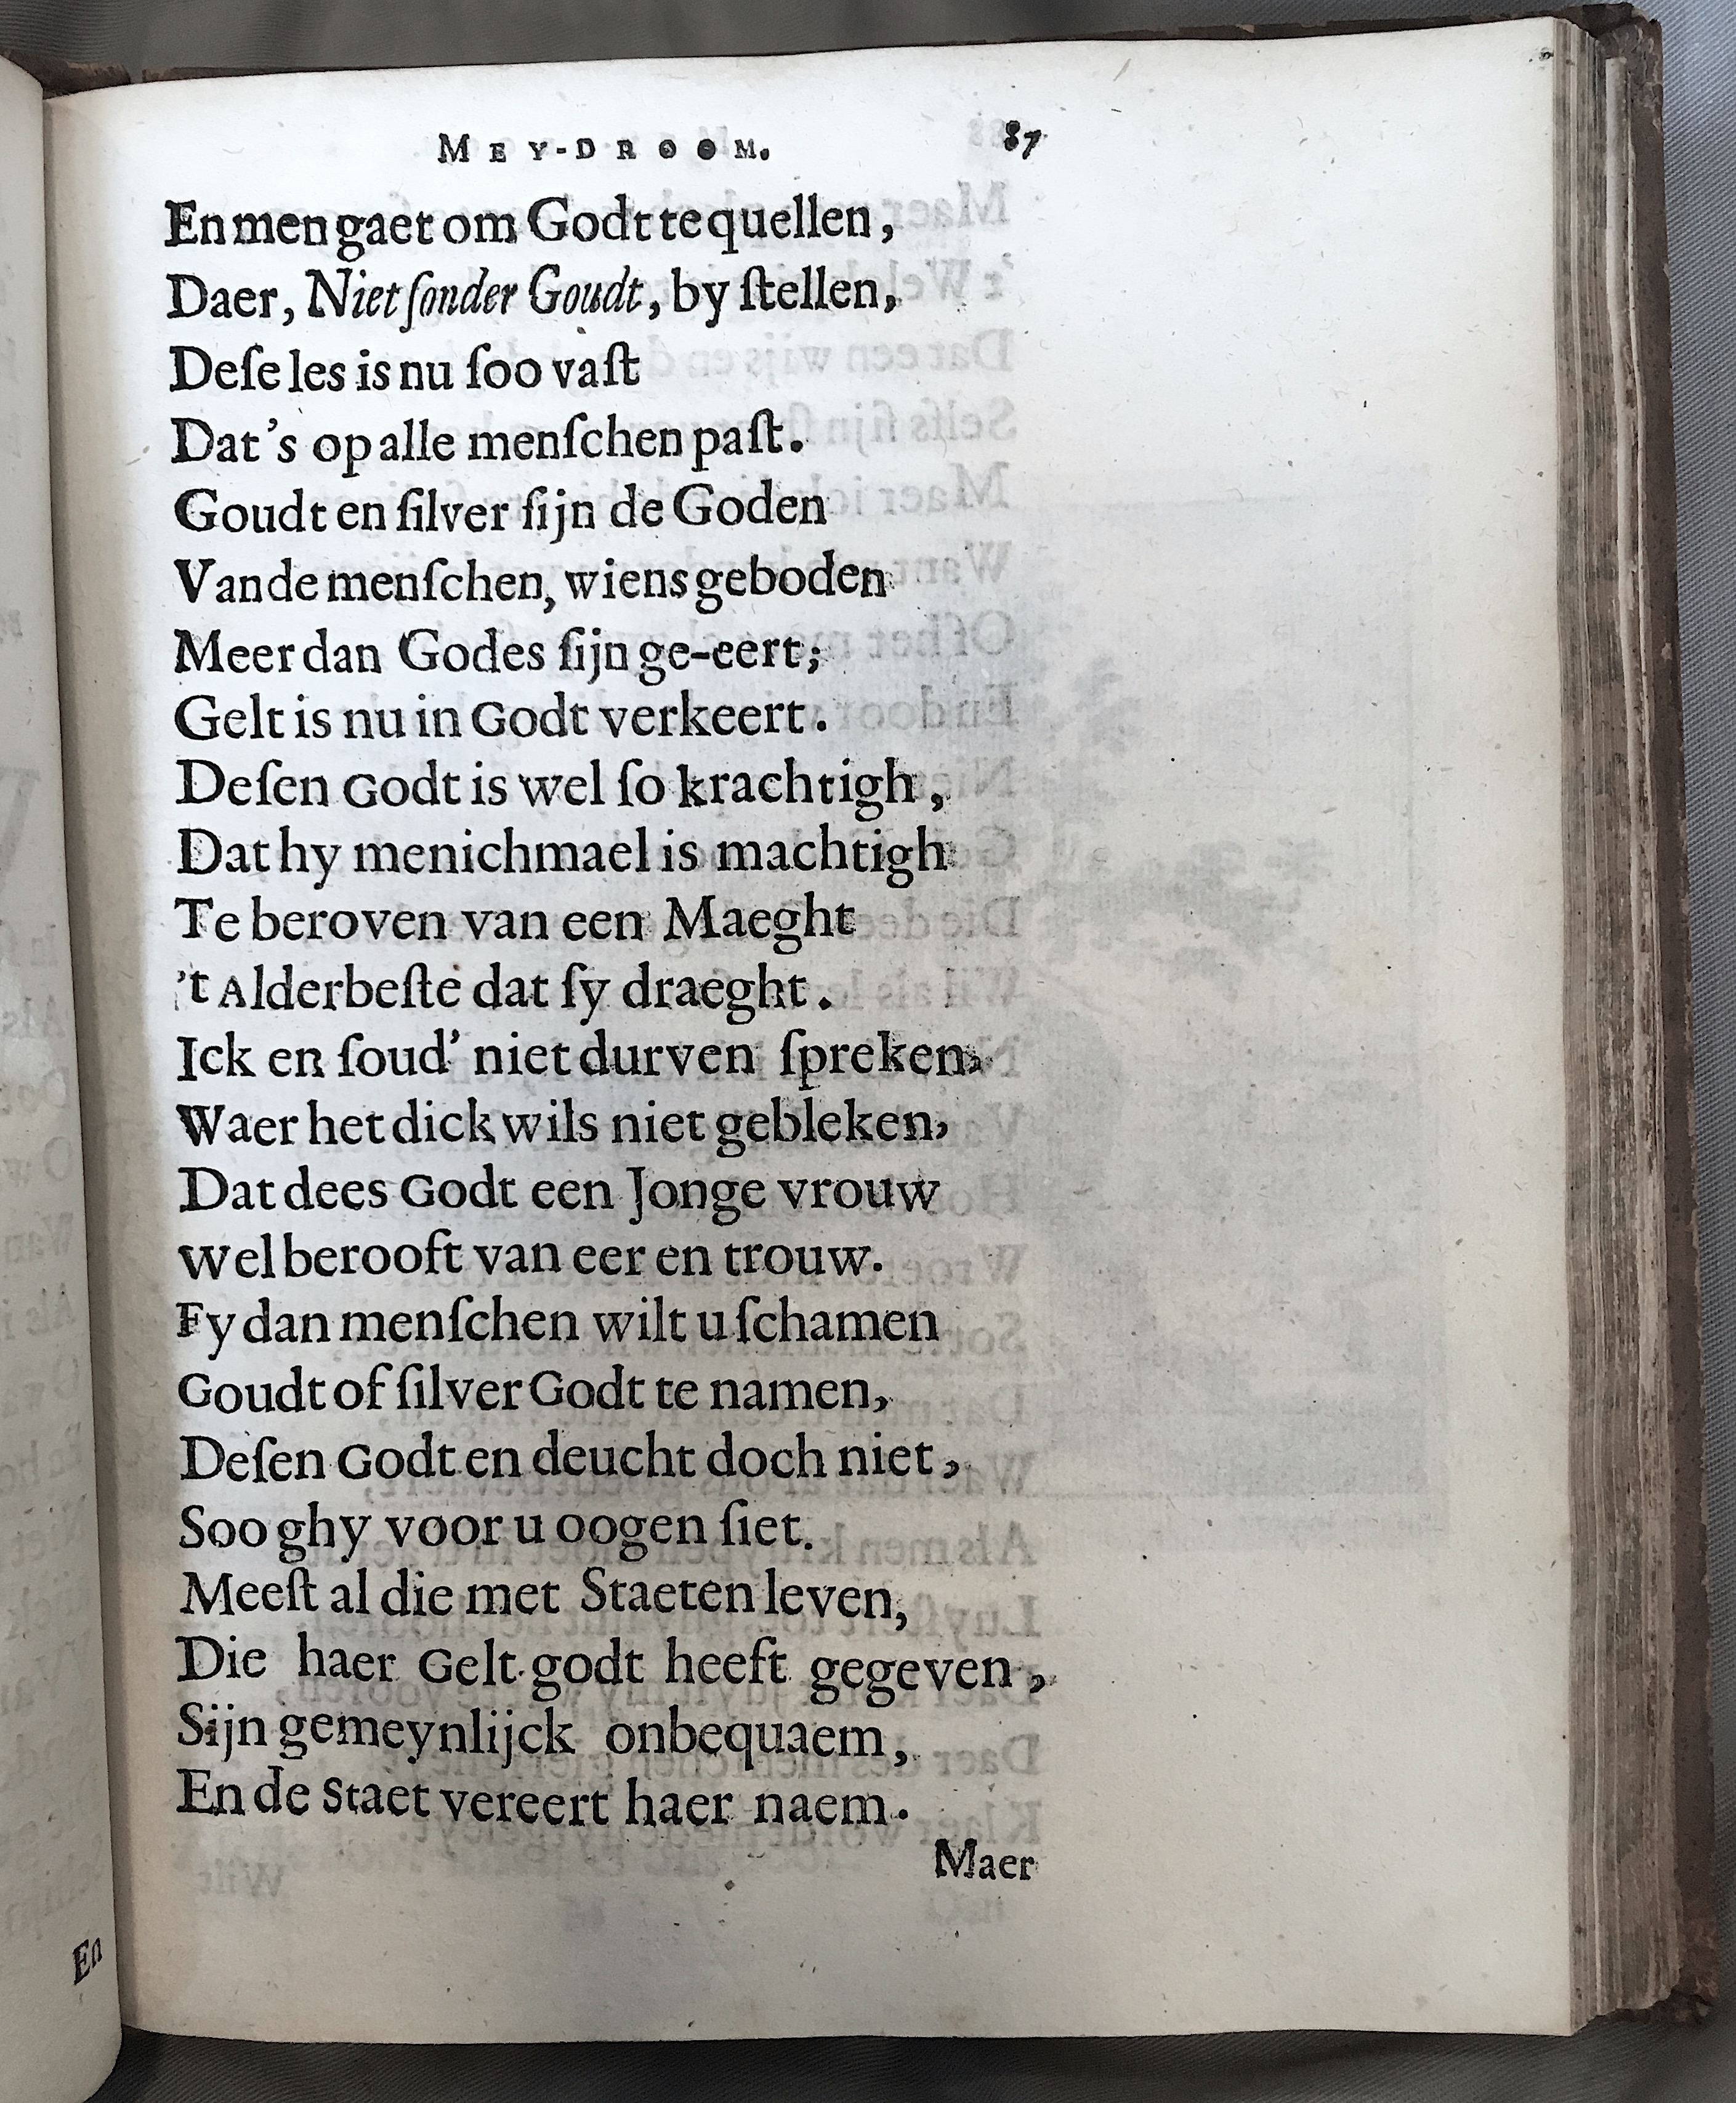 MEY-DROOM. 87
En men gaet om Godt te quellen,
Daer, Niet ſonder Goudt, by ſtellen,
Deſe les is nu ſoo vaſt
Dat's op alle menſchen paſt.
Goudt en ſilver ſijn de Goden
Van de menſchen, wiens geboden
Meer dan Godes ſijn ge-eert;
Gelt is nu in Godt verkeert.
Deſen Godt is wel ſo krachtigh,
Dat hy menichmael is machtigh
Te beroven van een Maeght
't Alderbeſte dat ſy draeght.
Ick en ſoud' niet durven ſpreken,
Waer het dickwils niet gebleken,
Dat dees Godt een Jonge vrouw
Wel berooft van eer en trouw.
Fy dan menſchen wilt u ſchamen
Goudt of ſilver Godt te namen,
Deſen Godt en deucht doch niet,
Soo ghy voor u oogen ſiet.
Meeſt al die met Staeten leven,
Die haer Gelt-godt heeft gegeven,
Sijn gemeynlijck onbequaem,
En de Staet vereert haer naem.
Maer
En